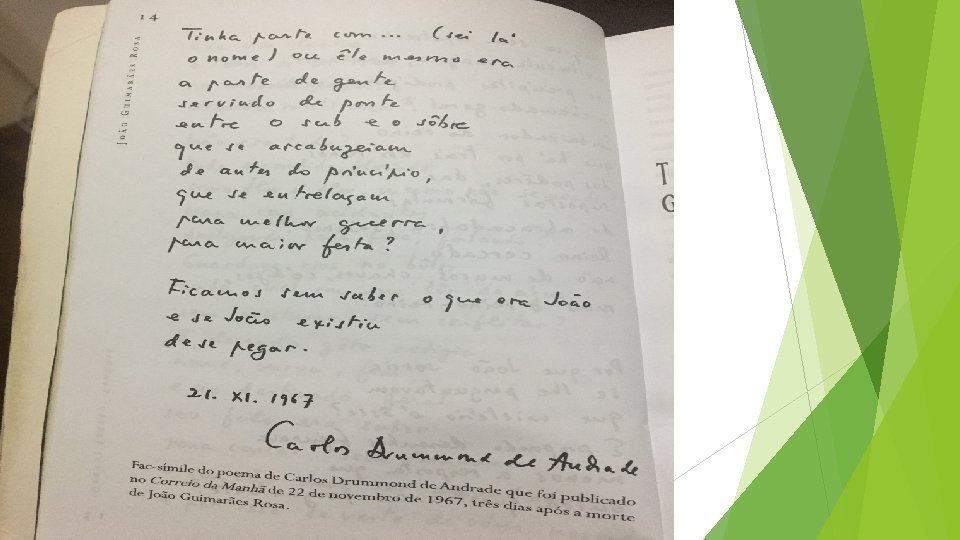 14
JOÃO GUIMARÃES ROSA
Tinha parte com... (sei lá
o nome) ou êle mesmo era
a parte de gente
servindo de ponte
entre o sub e o sôbre
que se arcabuzeiam
de antes do princípio,
que se entrelaçam
para melhor guerra,
para maior festa?
Ficamos sem saber o que era João
e se João existiu
de se pegar.
21. XI. 1967
Carlos Drummond de Andrade
Fac-símile do poema de Carlos Drummond de Andrade que foi publicado
no Correio da Manhã de 22 de novembro de 1967, três dias após a morte
de João Guimarães Rosa.
T
G